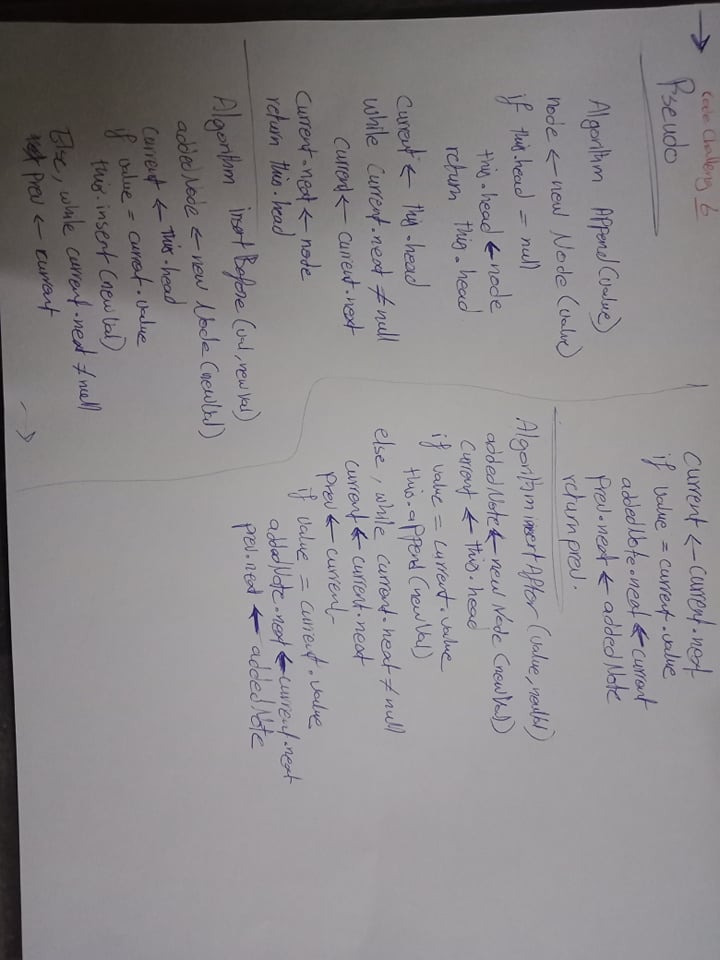 Code Challeng 6
Pseudo
Algorithm Append(value)
node ← new Node(value)
if this.head = null
this.head ← node
return this.head
Current ← this.head
while current.next ≠ null
current ← current.next
Current.next ← node
return this.head
Algorithm insertBefore(val, newVal)
addedNode ← new Node(newVal)
Current ← this.head
if value = current.value
this.insert(newVal)
Else, while current.next ≠ null
Prev ← current
Current ← current.next
if value = current.value
addedNote.next ← current
Prev.next ← addedNote
return prev.
Algorithm insertAfter(value, newVal)
addedNote ← new Node(newVal)
Current ← this.head
if value = current.value
this.append(newVal)
else, while current.next ≠ null
Current ← current.next
Prev ← current
if value = current.value
addedNote.next ← current.next
prev.next ← addedNote